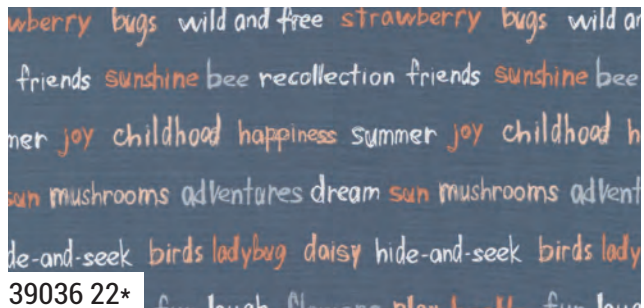 wberry bugs wild and free strawberry bugs wild an
friends sunshine bee recollection friends sunshine bee
mer joy childhood happiness summer joy childhood h
sun mushrooms adventures dream sun mushrooms advent
de-and-seek birds ladybug daisy hide-and-seek birds lady
39036 22*
laugh flowers